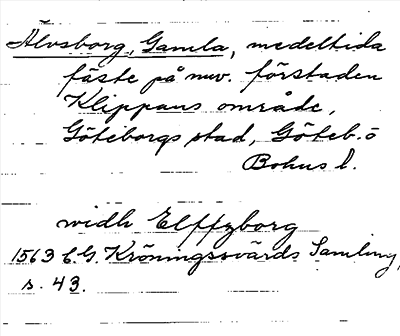 Älvsborg, Gamla, medeltida
fäste på nuv. förstaden
Klippans område,
Göteborgs stad, Göteb. o
Bohus l.
widh Elffzborg
1563 C.G. Kröningssvärds Samling,
s. 43.